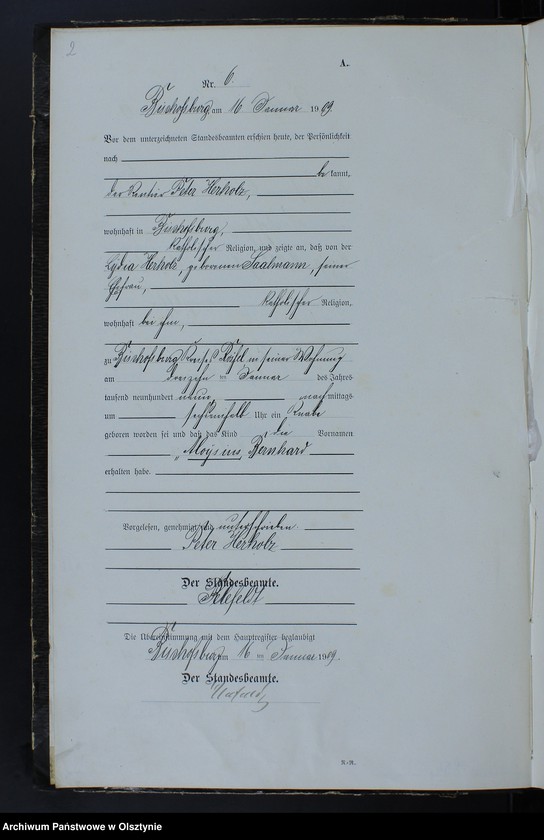 2
A.
Nr. 6.
Bischofsburg am 16 Januar 1909
Vor dem unterzeichneten Standesbeamten erschien heute, der Persönlichkeit
nach
be kannt,
der Rentier Peter Herholz,
wohnhaft in Bischofsburg,
katholischer Religion, und zeigte an, daß von der
Lydia Herholz, geborenen Saalmann, seiner
Ehefrau,
katholischer Religion,
wohnhaft bei ihm,
zu Bischofsburg Kreises Rößel in seiner Wohnung
am dreizehn ten Januar des Jahres
tausend neunhundert neun nachmittags
um sechseinhalb Uhr ein Knabe
geboren worden sei und daß das Kind die Vornamen
„Aloysius Bernhard
erhalten habe.
Vorgelesen, genehmigt und unterschrieben.
Peter Herholz
Der Standesbeamte.
Die Übereinstimmung mit dem Hauptregister beglaubigt
Bischofsburg am 16 ten Januar 1909.
Der Standesbeamte.
R.-R.
Archiwum Państwowe w Olsztynie